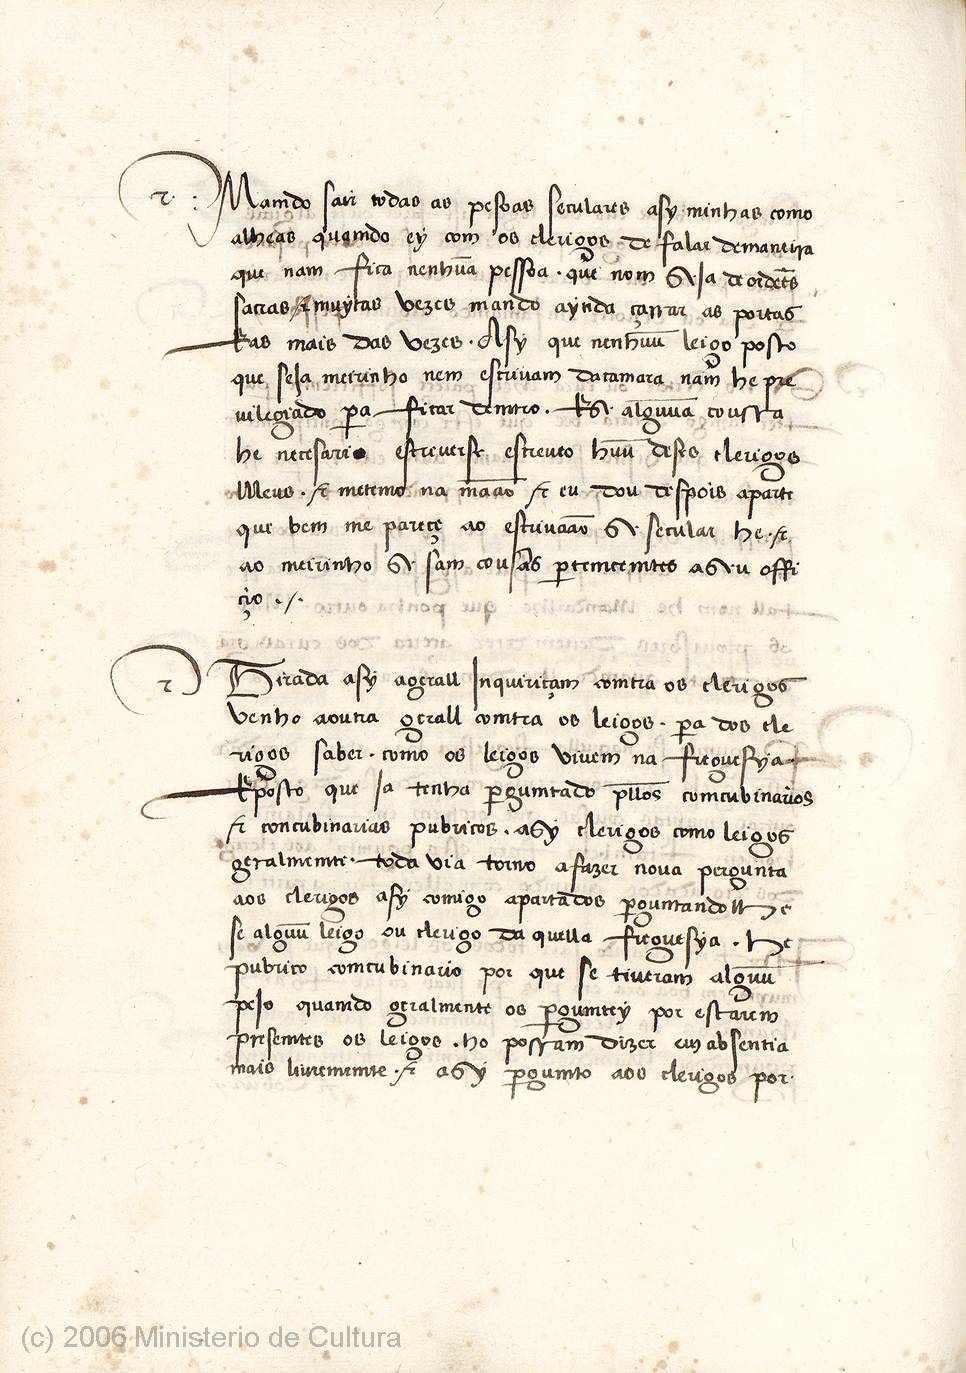 Mamdo sair todas as pesoas seculares asy minhas como
alheas quamdo ey com os clerigos de falar de maneira
que nam fica nenhũa pessoa . que nom seja de ordẽes
sacras & muytas vezes mando aynda çarrar as portas
Ras mais das vezes . Asy que nenhũu leigo posto
que seja meirinho nem escrivam da camara nam he pre
vilegiado pa ficar demtro . E se algũua cousa
he necesario escreverse escreveo hũu deses clerigos
Meus . & metemo na mãao & eu dou despois aparte
que bem me pareçe ao escrivaão se secular he . &
ao meirinho se sam cousas pertemcemtes a seu offi
çio . /.
Tirada asy a gerall Inquiriçam comtra os clerigos
venho a outra gerall comtra os leigos . pa dos cle
rigos saber . como os leigos vivem na freguesya
E posto que ja tenha pguntado pllos comcubinarios
& concubinarias pubricos . asy clerigos como leigos
geralmemte . toda via torno a fazer nova pergunta
aos clerigos asy comigo apartados pguntandolhe
se algũu leigo ou clerigo da quella freguesya . he
pubrico comcubinario por que se tiveram algũu
pejo quamdo geralmente os pgumtey por estarem
presemtes os leigos . ho possam dizer em absentia
mais livrememte . & asy pgumto aos clerigos por
(c) 2006 Ministerio de Cultura